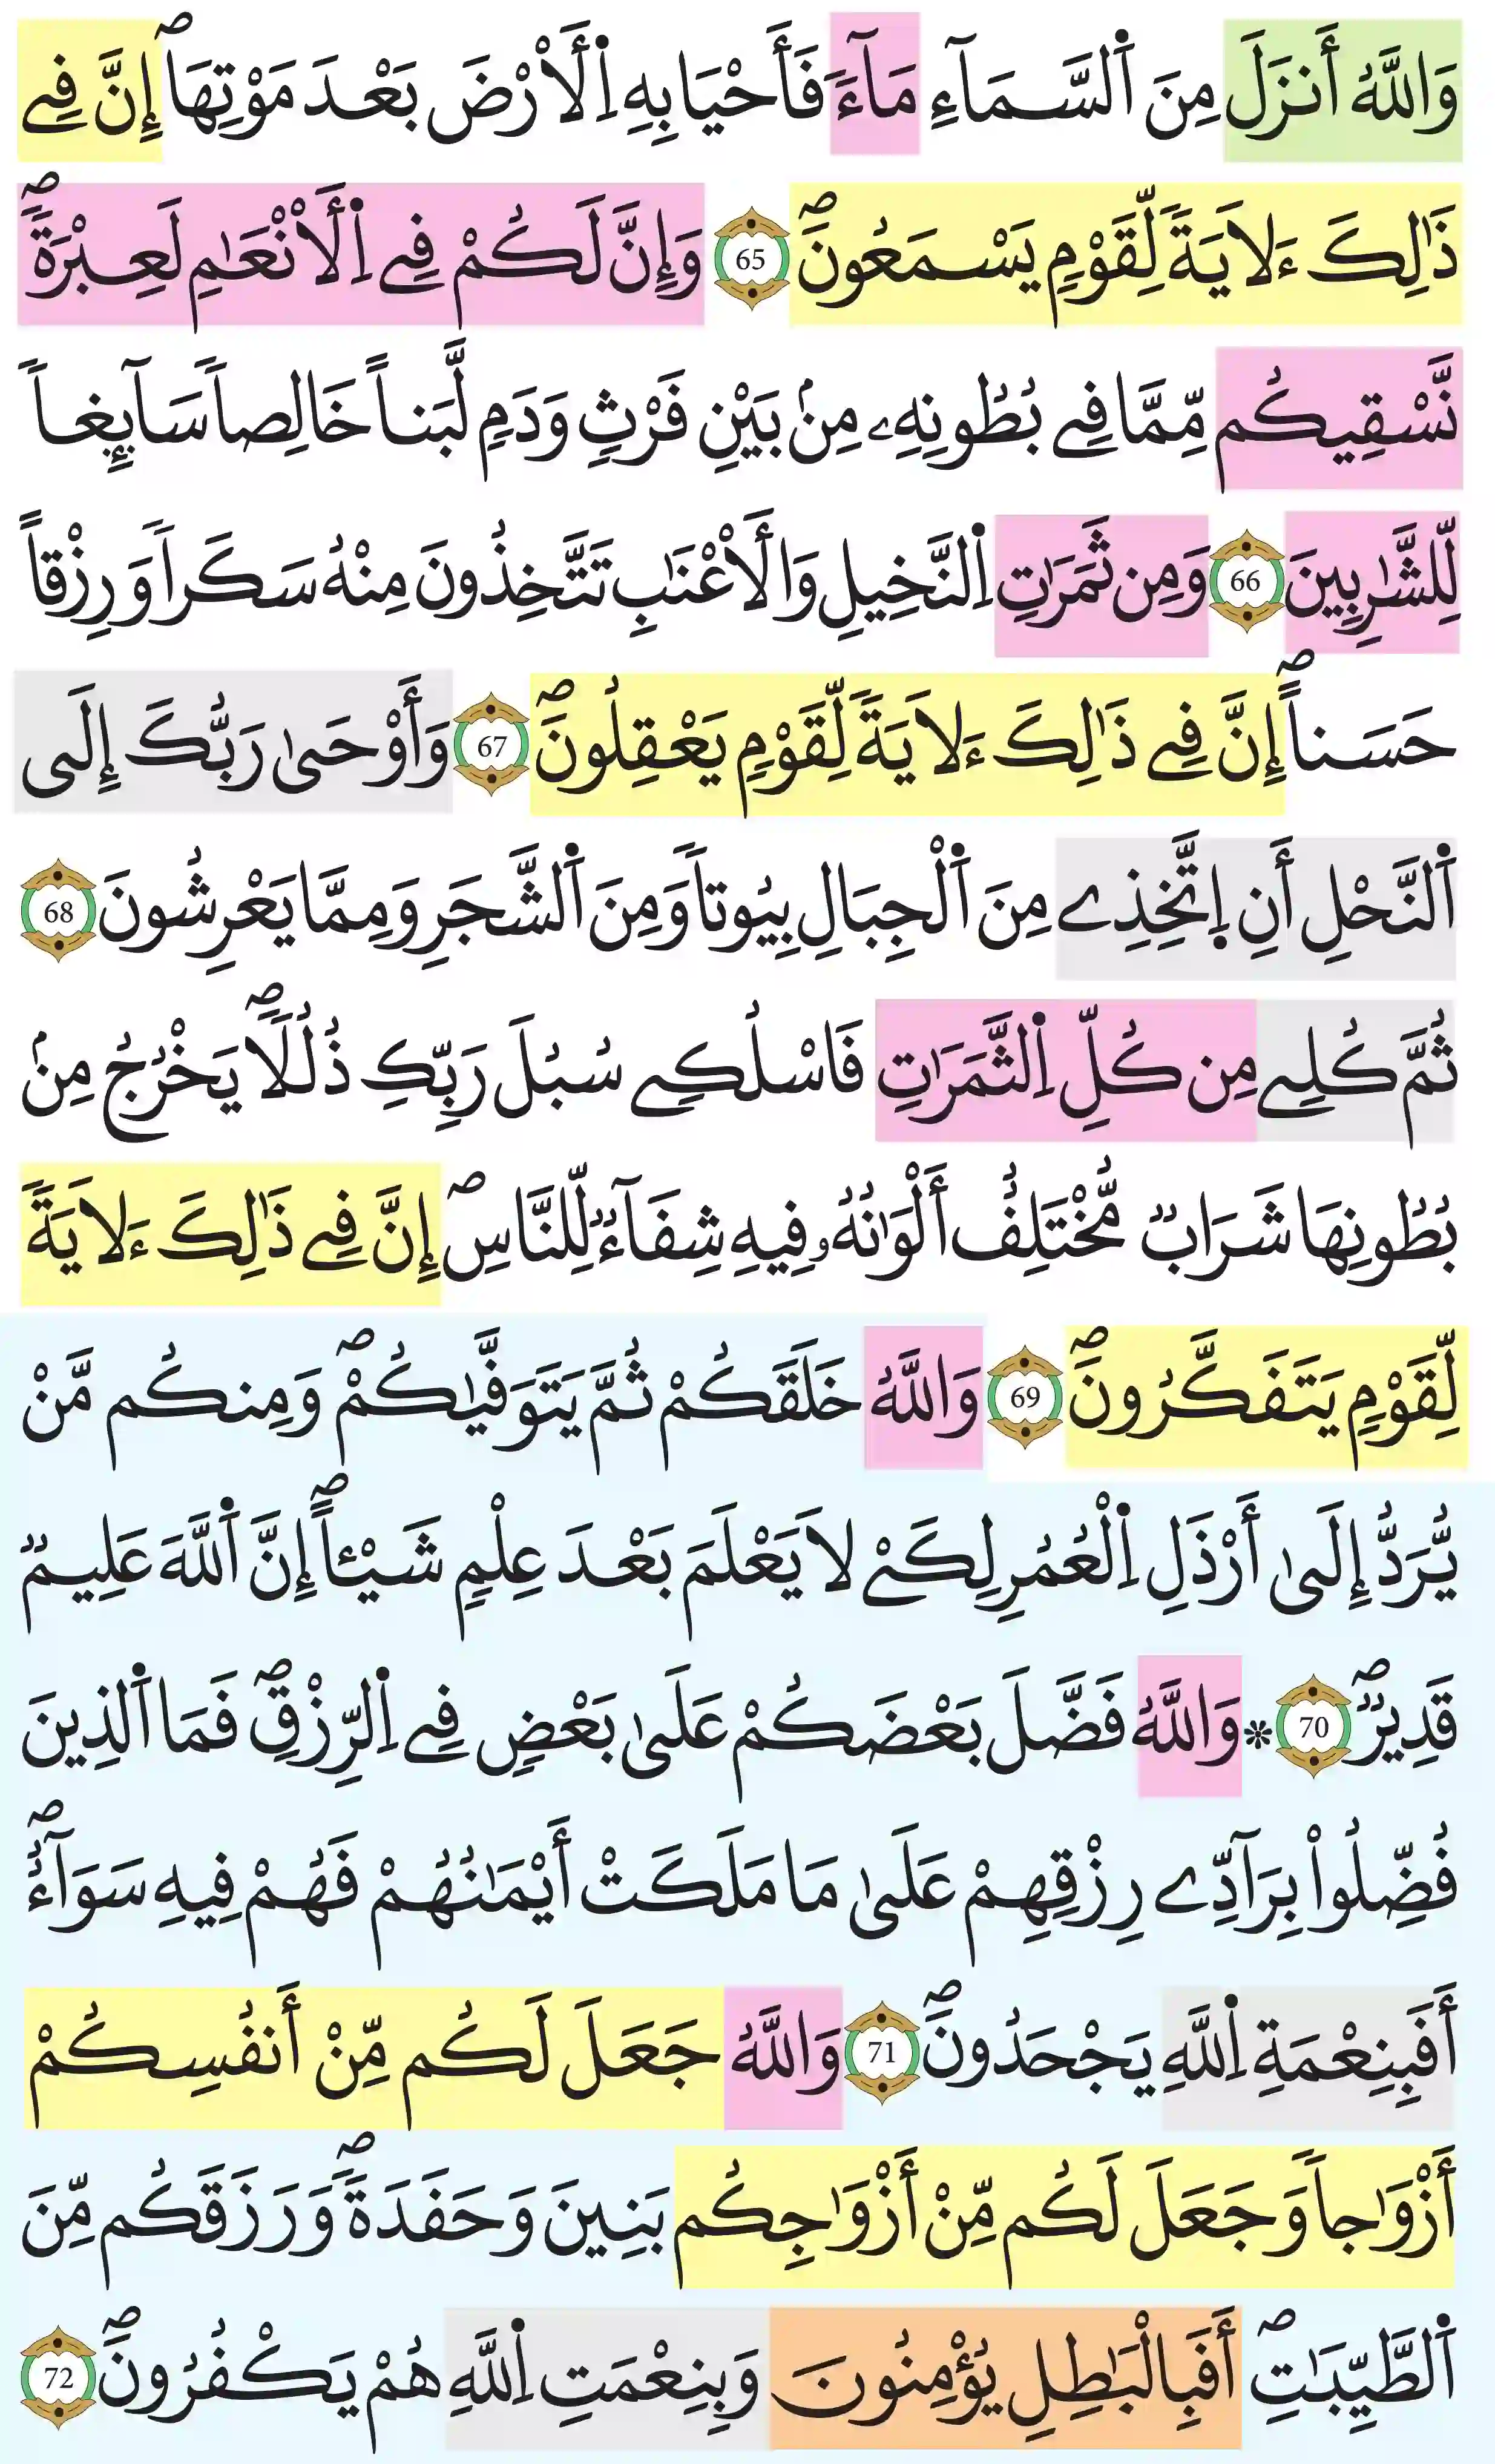 وَاللَّهُ أَنزَلَ مِنَ اَ۬لسَّمَآءِ مَآءٗ فَأَحْيَا بِهِ اِ۬لَارْضَ بَعْدَ مَوْتِهَآۖ إِنَّ فِے
ذَٰلِكَ ءَلَايَةٗ لِّقَوْمٖ يَسْمَعُونَۖ 65 وَإِنَّ لَكُمْ فِے اِ۬لَانْعَٰمِ لَعِبْرَةٗۖ
نَّسْقِيكُم مِّمَّا فِے بُطُونِهِۦ مِنۢ بَيْنِ فَرْثٖ وَدَمٖ لَّبَناً خَالِصاٗ سَآئِغاٗ
لِّلشَّٰرِبِينَ 66 وَمِن ثَمَرَٰتِ اِ۬لنَّخِيلِ وَالَاعْنَٰبِ تَتَّخِذُونَ مِنْهُ سَكَراٗ وَرِزْقاً
حَسَناًۖ إِنَّ فِے ذَٰلِكَ ءَلَايَةٗ لِّقَوْمٖ يَعْقِلُونَۖ 67 وَأَوْحَىٰ رَبُّكَ إِلَى
اَ۬لنَّحْلِ أَنِ اِ۪تَّخِذِے مِنَ اَ۬لْجِبَالِ بِيُوتاٗ وَمِنَ اَ۬لشَّجَرِ وَمِمَّا يَعْرِشُونَ 68
ثُمَّ كُلِے مِن كُلِّ اِ۬لثَّمَرَٰتِ فَاسْلُكِے سُبُلَ رَبِّكِ ذُلُلاٗۖ يَخْرُجُ مِنۢ
بُطُونِهَا شَرَابٞ مُّخْتَلِفٌ أَلْوَٰنُهُۥ فِيهِ شِفَآءٞ لِّلنَّاسِۖ إِنَّ فِے ذَٰلِكَ ءَلَايَةٗ
لِّقَوْمٖ يَتَفَكَّرُونَۖ 69 وَاللَّهُ خَلَقَكُمْ ثُمَّ يَتَوَفَّيٰكُمْۖ وَمِنكُم مَّنْ
يُّرَدُّ إِلَىٰ أَرْذَلِ اِ۬لْعُمُرِ لِكَےْ لَا يَعْلَمَ بَعْدَ عِلْمٖ شَيْـٔاًۖ إِنَّ اَ۬للَّهَ عَلِيمٞ
قَدِيرٞۖ 70 ۞ وَاللَّهُ فَضَّلَ بَعْضَكُمْ عَلَىٰ بَعْضٖ فِے اِ۬لرِّزْقِۖ فَمَا اَ۬لذِينَ
فُضِّلُواْ بِرَآدِّے رِزْقِهِمْ عَلَىٰ مَا مَلَكَتْ أَيْمَٰنُهُمْ فَهُمْ فِيهِ سَوَآءٌۖ
أَفَبِنِعْمَةِ اِ۬للَّهِ يَجْحَدُونَۖ 71 وَاللَّهُ جَعَلَ لَكُم مِّنْ أَنفُسِكُمْ
أَزْوَٰجاٗ وَجَعَلَ لَكُم مِّنْ أَزْوَٰجِكُم بَنِينَ وَحَفَدَةٗۖ وَرَزَقَكُم مِّنَ
اَ۬لطَّيِّبَٰتِۖ أَفَبِالْبَٰطِلِ يُؤْمِنُونَ وَبِنِعْمَتِ اِ۬للَّهِ هُمْ يَكْفُرُونَۖ 72